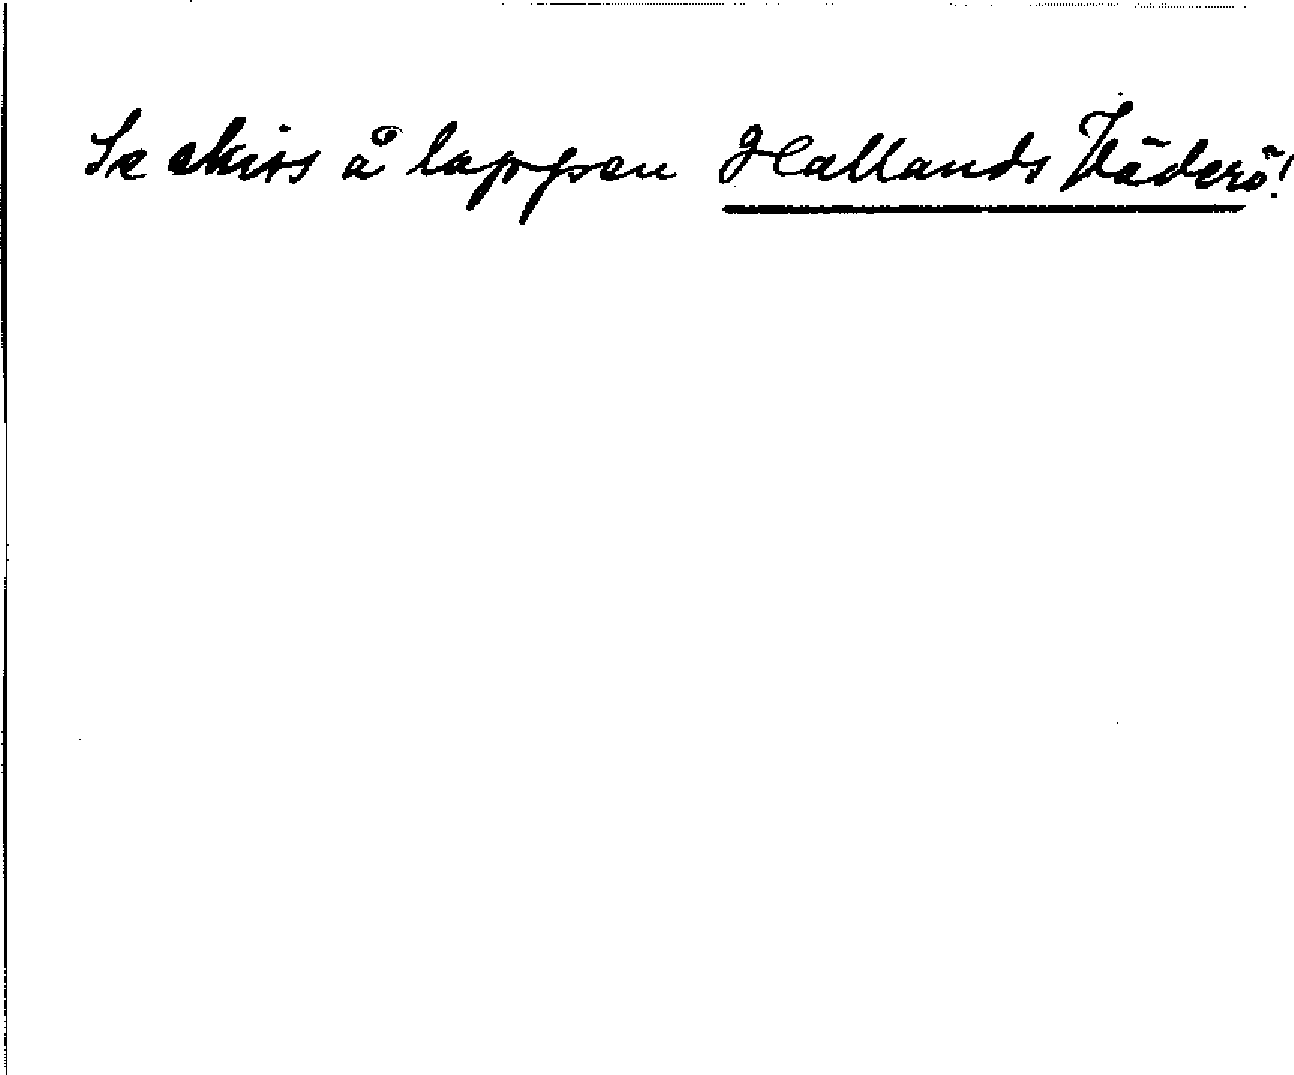 Se skiss å lappen Hallands Väderö!